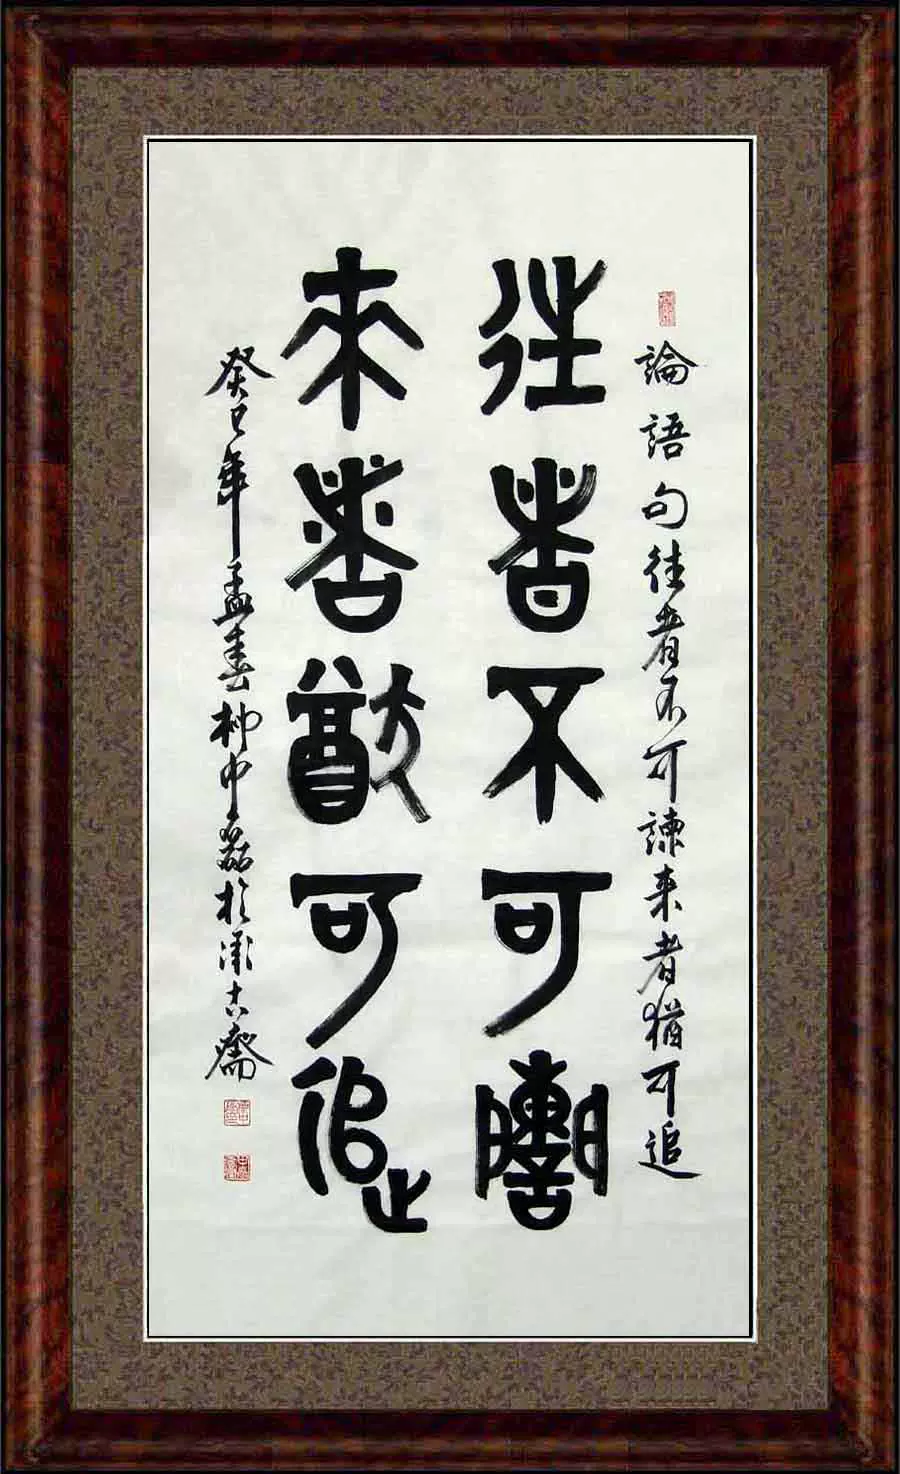 論語句往者不可諫来者猶可追
往者不可諫
來者猶可追
癸巳年孟春柳中磊於古齋